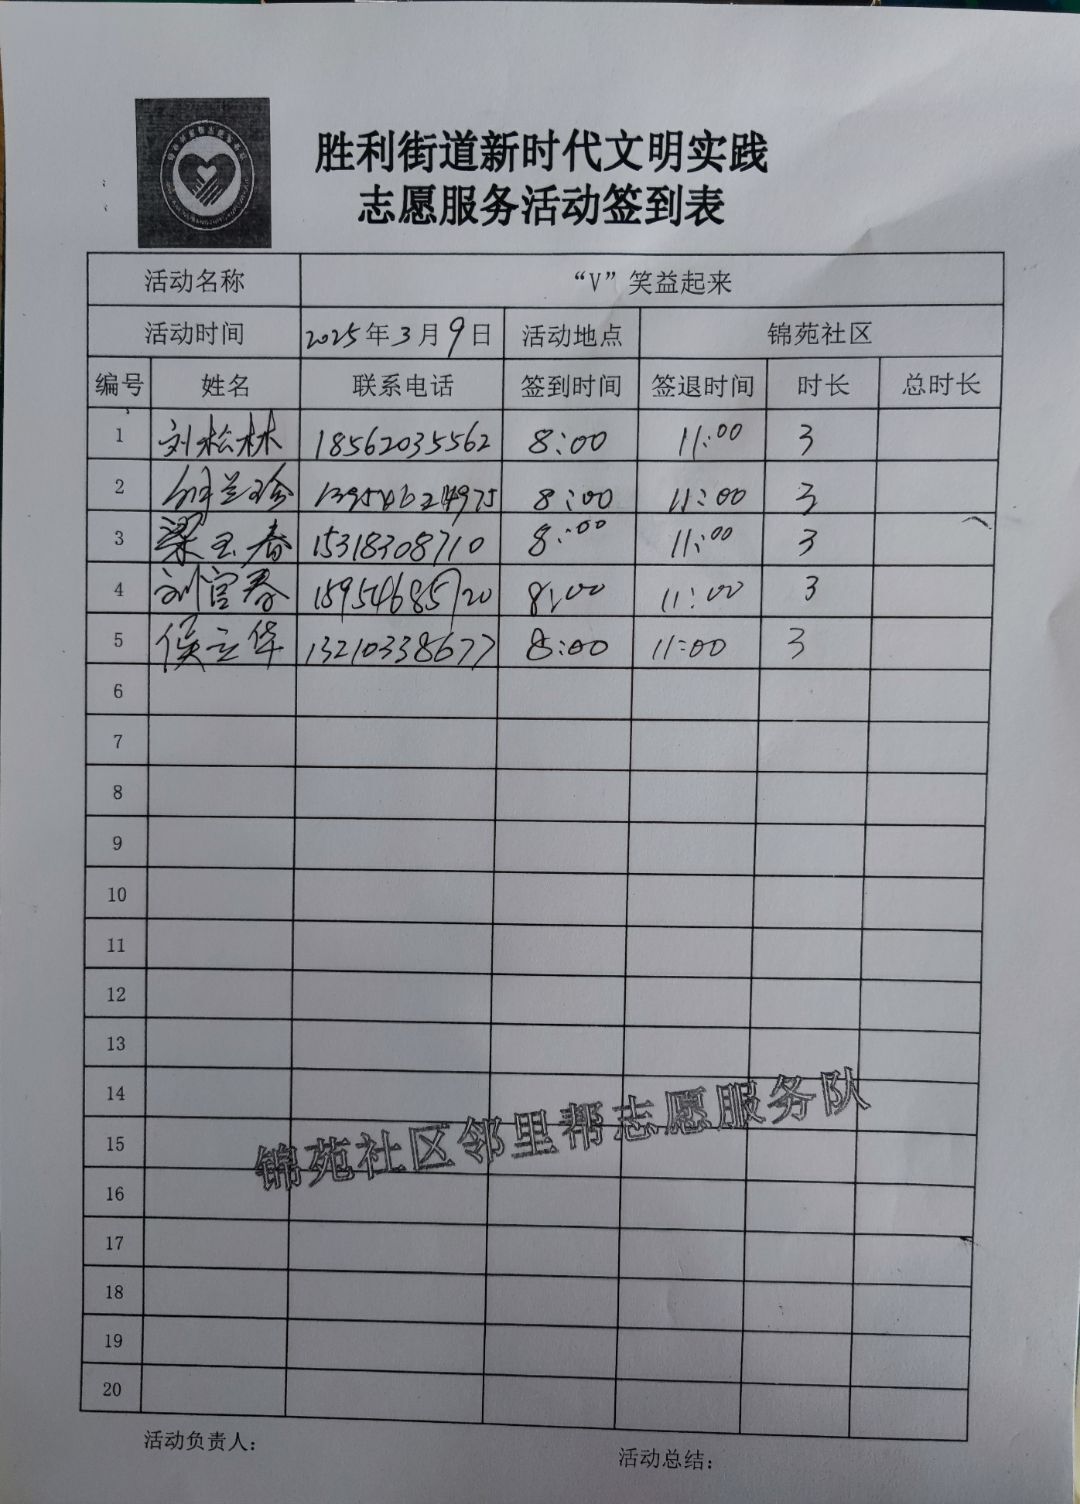 胜利街道新时代文明实践
志愿服务活动签到表
活动名称 “V”笑益起来
活动时间 2025年3月9日 活动地点 锦苑社区
编号 姓名 联系电话 签到时间 签退时间 时长 总时长
1 刘松林 18562035562 8:00 11:00 3
2 兰珍 8:00 11:00 3
3 梁玉春 15318308710 8:00 11:00 3
4 刘官春 15954685720 8:00 11:00 3
5 侯立华 13210338677 8:00 11:00 3
6
7
8
9
10
11
12
13
14
15
16
17
18
19
20
锦苑社区邻里帮志愿服务队
活动负责人：
活动总结：